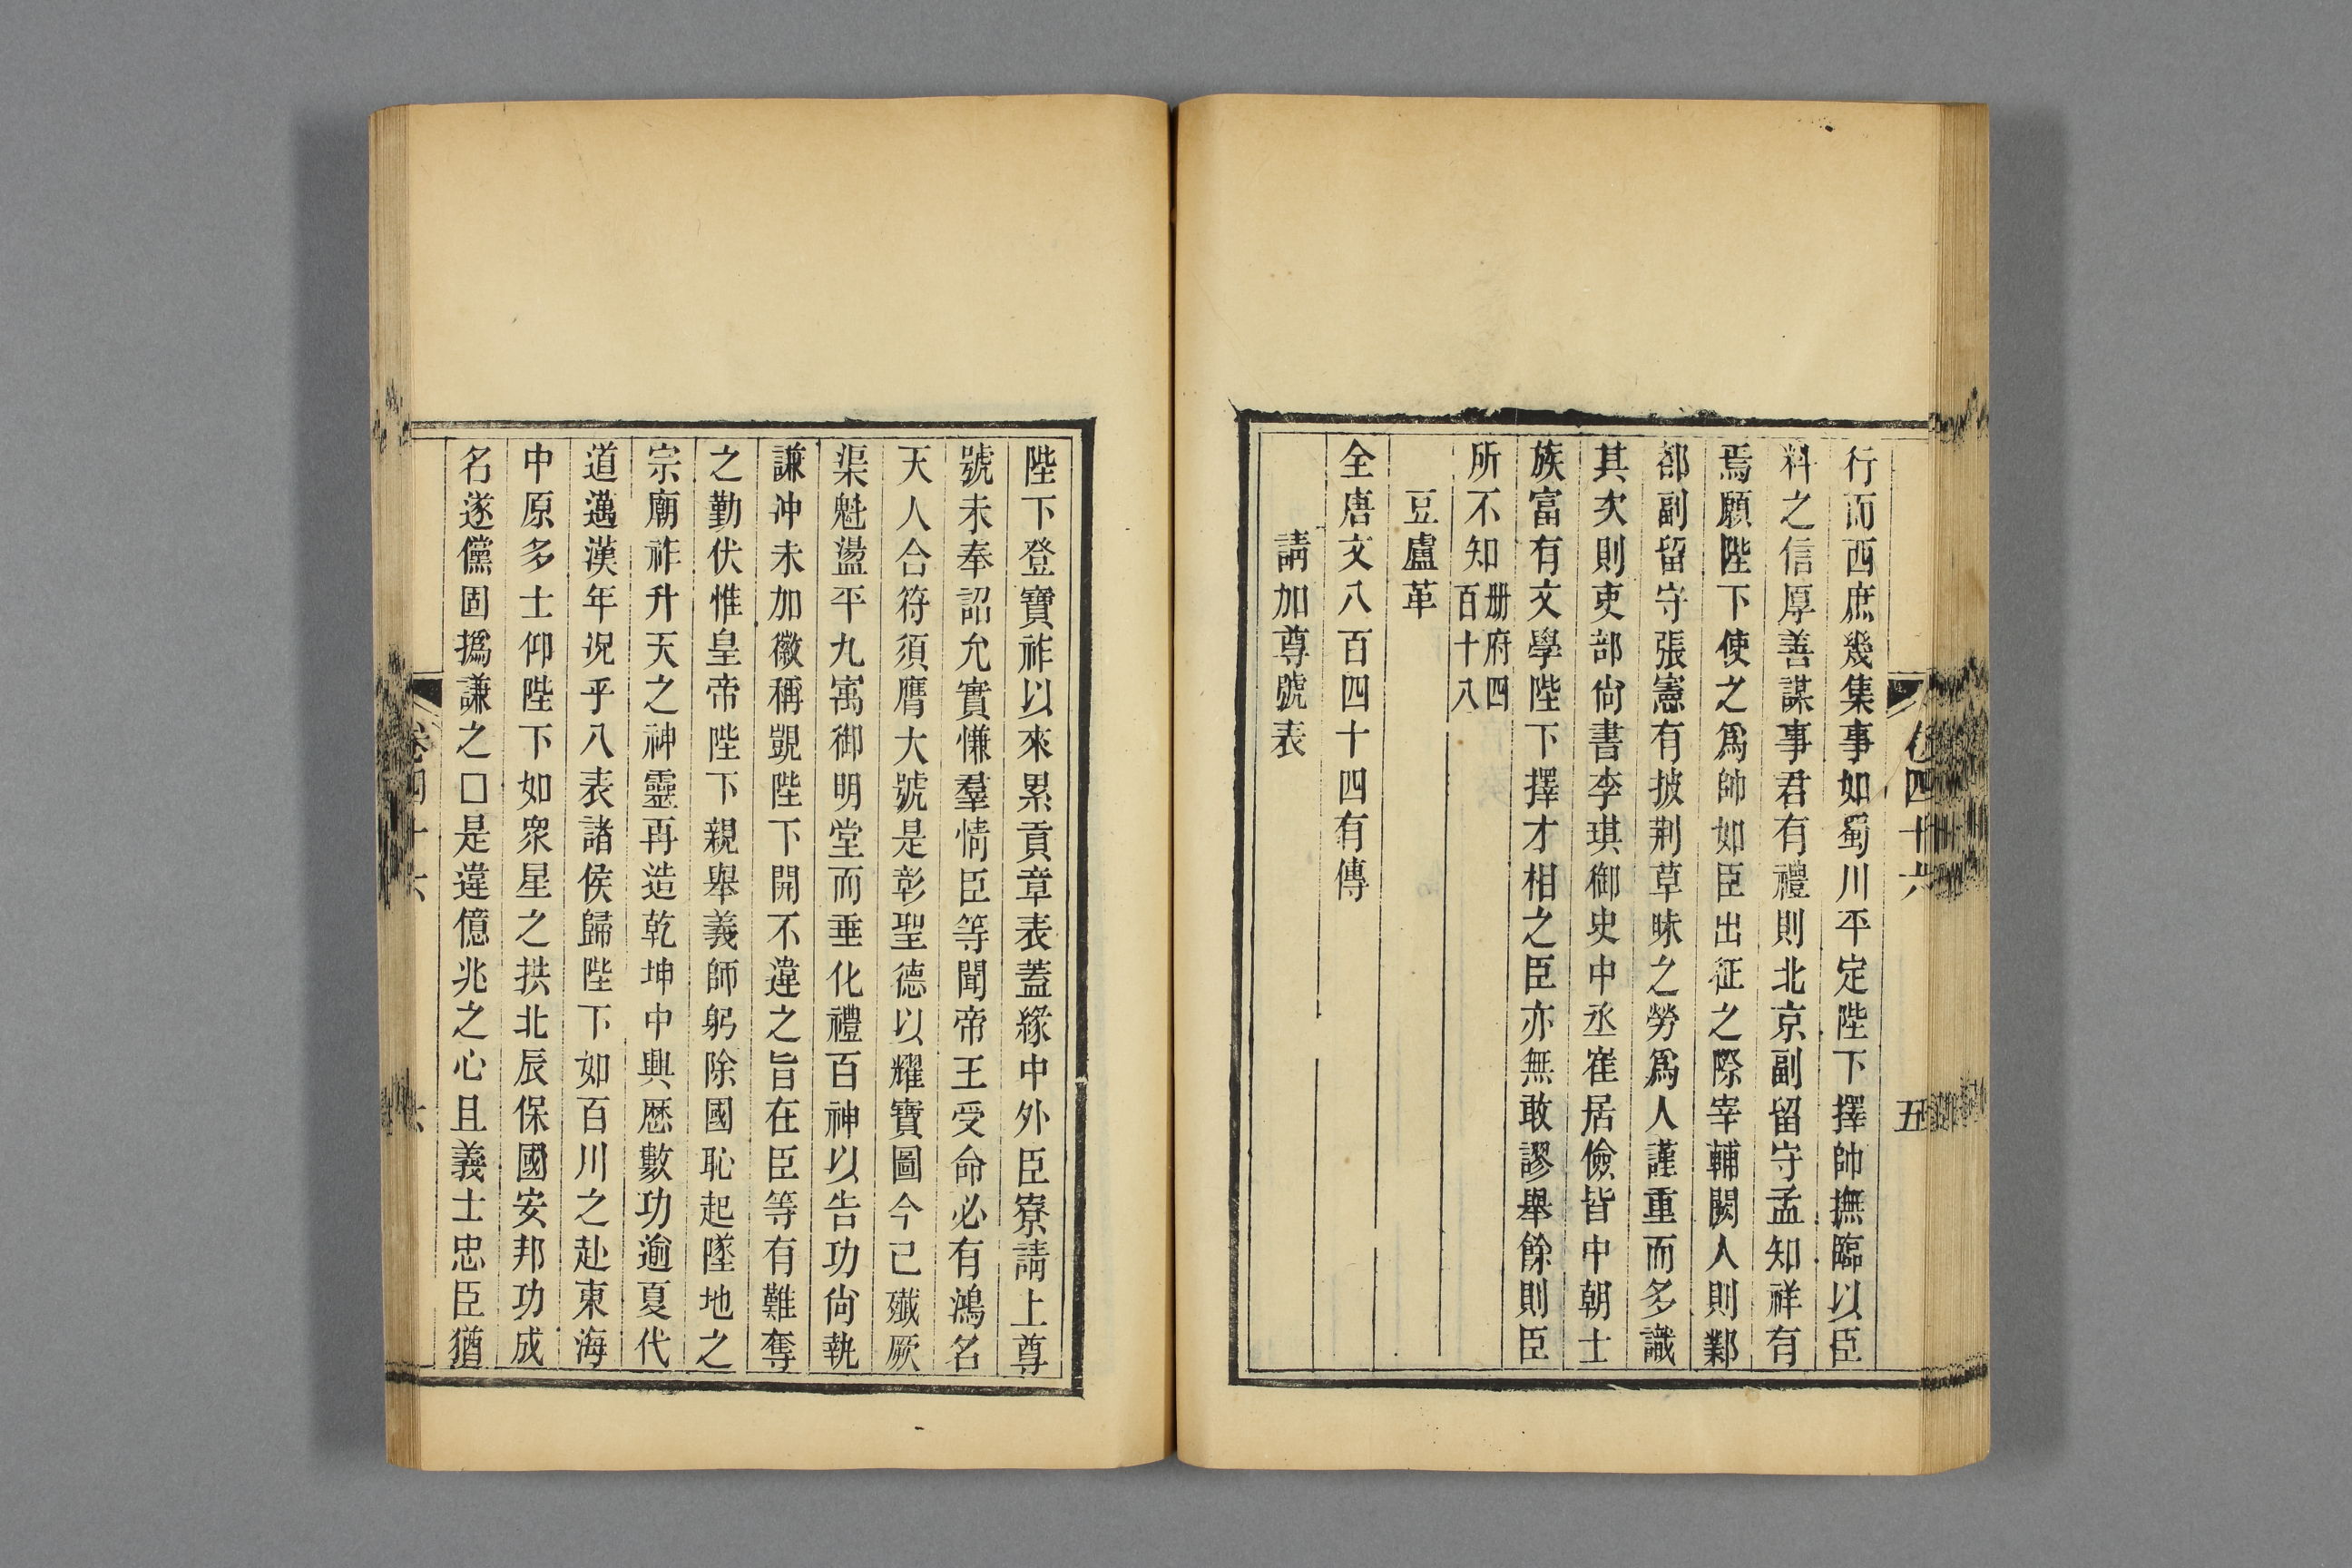 卷四十六
五
行而西庶幾集事如蜀川平定陛下擇帥撫臨以臣
料之信厚善謀事君有禮則北京副留守孟知祥有
焉願陛下使之爲帥如臣出征之際宰輔闕人則鄴
都副留守張憲有披荆草昧之勞爲人謹重而多識
其次則吏部尙書李琪御史中丞崔居儉皆中朝士
族富有文學陛下擇才相之臣亦無敢謬舉餘則臣
所不知册府四百十八
豆盧革
全唐文八百四十四有傳
請加尊號表
陛下登寶祚以來累貢章表蓋緣中外臣寮請上尊
號未奉詔允實慊羣情臣等聞帝王受命必有鴻名
天人合符須膺大號是彰聖德以耀寶圖今已殲厥
渠魁盪平九㝢御明堂而垂化禮百神以告功尙執
謙冲未加徽稱覬陛下開不違之旨在臣等有難奪
之勤伏惟皇帝陛下親舉義師躬除國恥起墜地之
宗廟祚升天之神靈再造乾坤中興歷數功逾夏代
道邁漢年况乎八表諸侯歸陛下如百川之赴東海
中原多士仰陛下如衆星之拱北辰保國安邦功成
名遂儻固撝謙之□是違億兆之心且義士忠臣猶
卷四十六
六